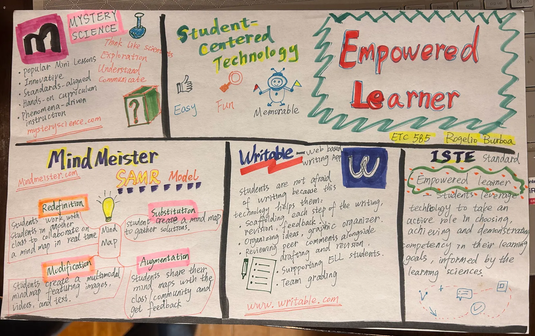 m
MYSTERY
SCIENCE
Think like scientists
Exploration
Understand
Communicate
• Popular Mini Lessons
• Innovative
• Standards-aligned
• Hands-on curriculum
• Phenomena-driven
instruction
mysteryscience.com
?
Student-
Centered
Technology
Easy
Fun
Memorable
Empowered
Learner
ETC 585
Rogelio Burboa
MindMeister
Mindmeister.com
SAMR Model
Redefinition
Students work with
students in another
class to collaborate on
a mind map in real time
Mind
Map
Substitution
Students create a mind map
to gather solutions.
Modification
Students create a multimodal
mindmap featuring images,
videos, and text.
Augmentation
Students share their
mind maps with the
class community and
get feedback
Writable - web based
writing app
W
Students are not afraid
of writing because this
technology helps them.
• Scaffolding each step of the writing.
• Revision, feedback.
• Organizing ideas, graphic organizer.
• Reviewing peer comments alongside
drafting and revision.
• Supporting ELL students.
• Team grading
www.writable.com
ISTE Standard
Empowered learner
Students leverage
technology to take an
active role in choosing,
achieving and demonstrating
competency in their learning
goals, informed by the
learning sciences.